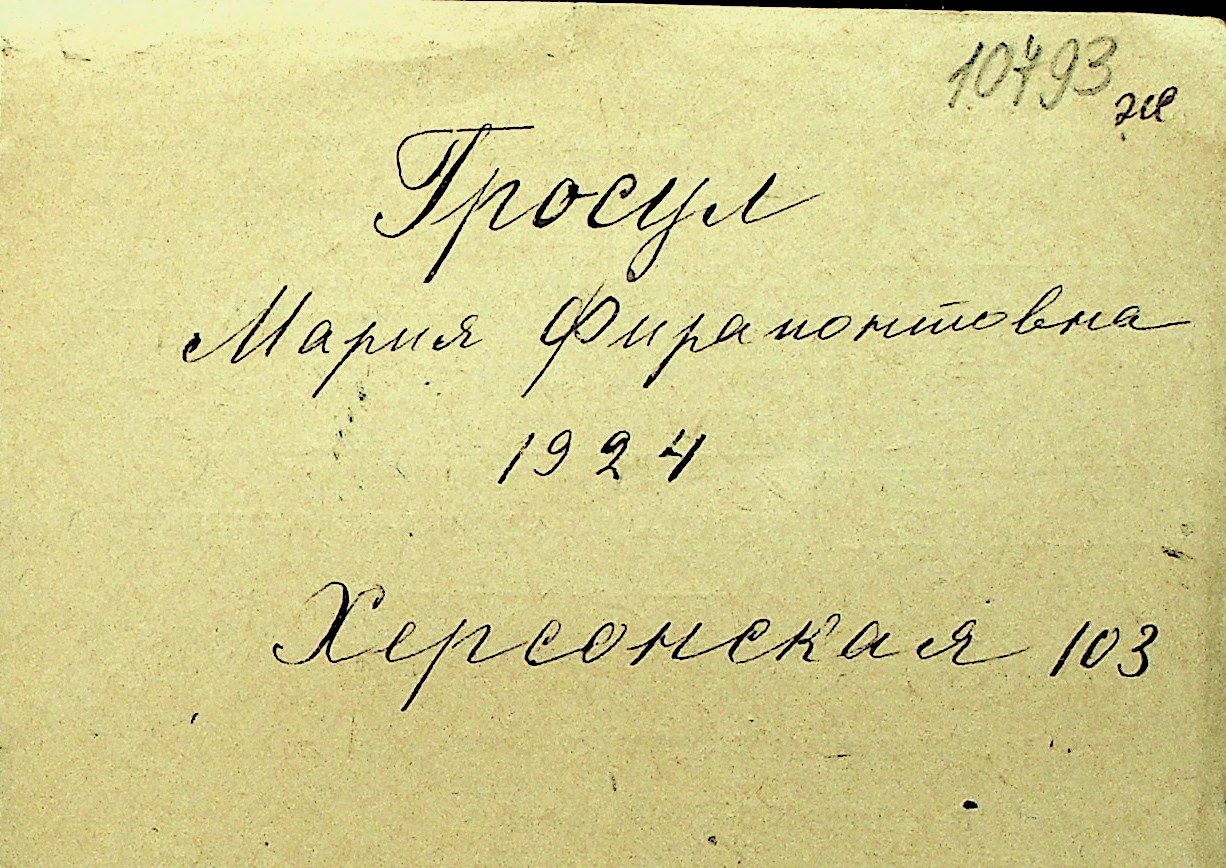 10493
Гросул
Мария Фирапонтовна
1924
Херсонская 103